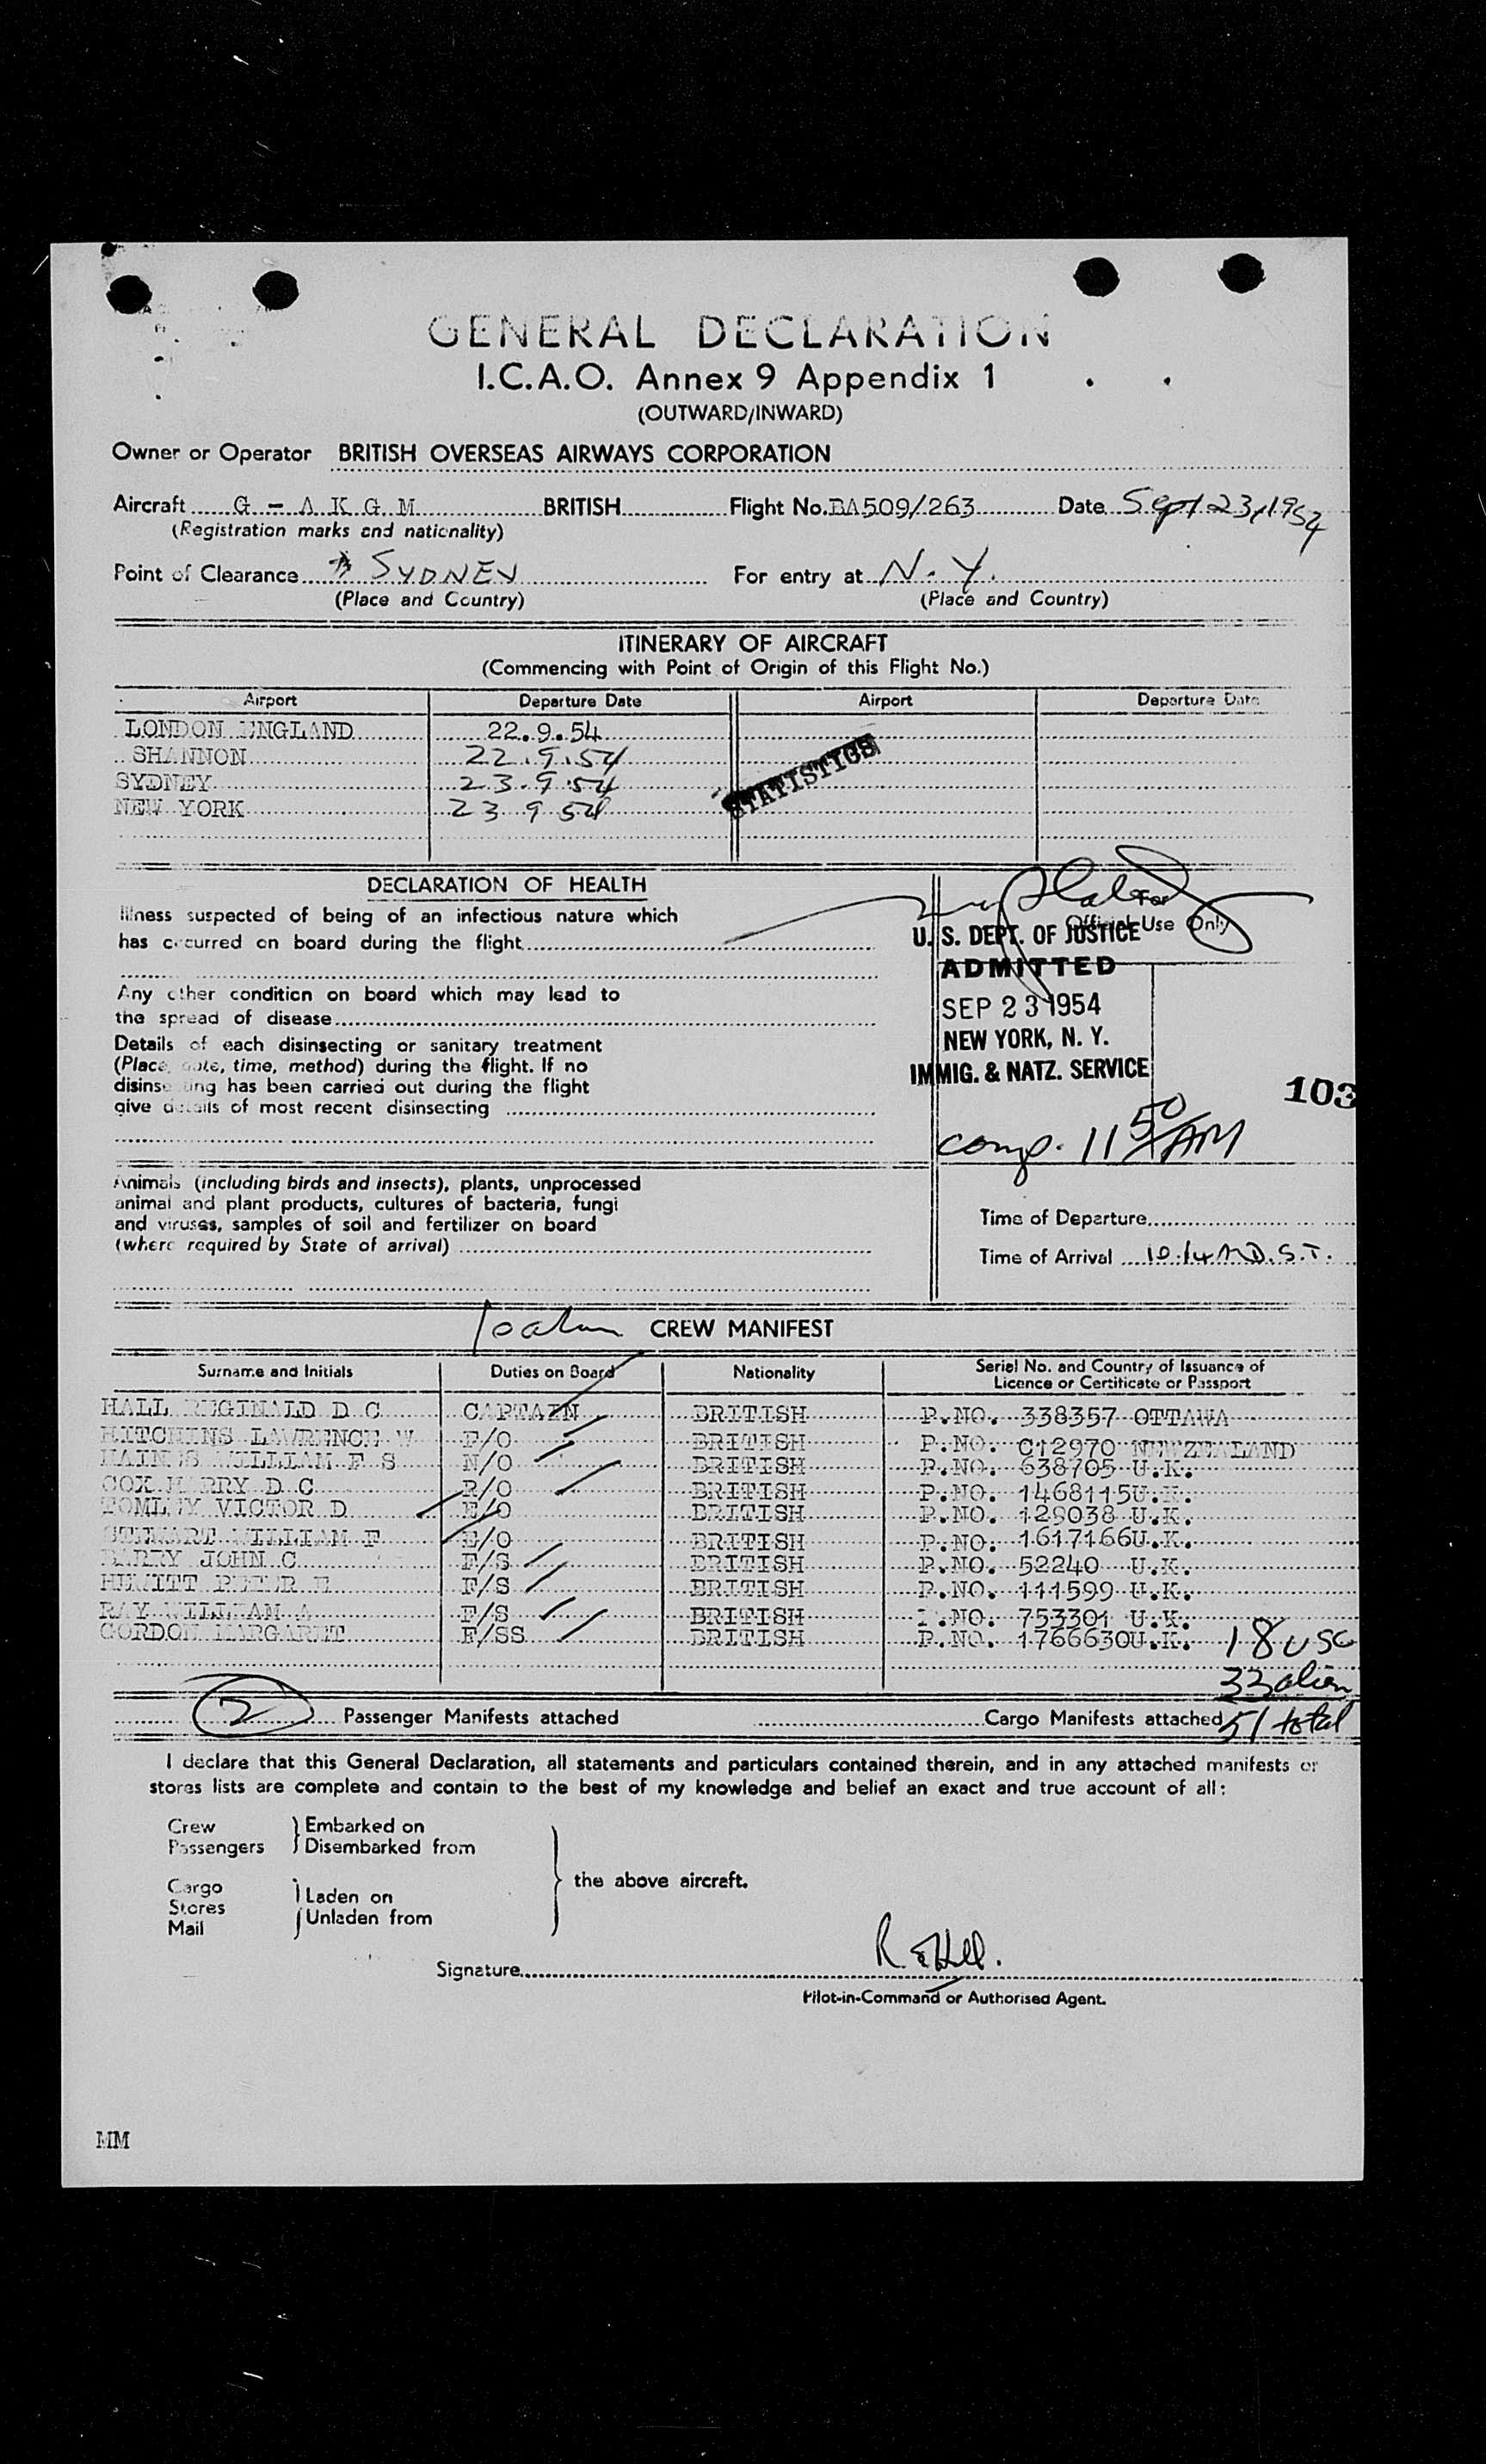 GENERAL DECLARATION
I.C.A.O. Annex 9 Appendix 1
(OUTWARD/INWARD)
Owner or Operator BRITISH OVERSEAS AIRWAYS CORPORATION
Aircraft G - A K G M BRITISH Flight No. BA509/263 Date Sept 23, 1954
(Registration marks and nationality)
Point of Clearance SYDNEY For entry at N. Y.
(Place and Country) (Place and Country)
ITINERARY OF AIRCRAFT
(Commencing with Point of Origin of this Flight No.)
Airport Departure Date Airport Departure Date
LONDON ENGLAND 22.9.54
SHANNON 22.9.54
SYDNEY 23.9.54
NEW YORK 23 9 54
STATISTICS
DECLARATION OF HEALTH
Illness suspected of being of an infectious nature which
has occurred on board during the flight
Any other condition on board which may lead to
the spread of disease
Details of each disinsecting or sanitary treatment
(Place, date, time, method) during the flight. If no
disinsecting has been carried out during the flight
give details of most recent disinsecting
For
Official Use Only
U. S. DEPT. OF JUSTICE
ADMITTED
SEP 23 1954
NEW YORK, N. Y.
IMMIG. & NATZ. SERVICE
103
comp. 11 50 AM
Animals (including birds and insects), plants, unprocessed
animal and plant products, cultures of bacteria, fungi
and viruses, samples of soil and fertilizer on board
(where required by State of arrival)
Time of Departure
Time of Arrival 10.14 A D.S.T.
CREW MANIFEST
Surname and Initials Duties on Board Nationality Serial No. and Country of Issuance of
Licence or Certificate or Passport
HALL REGINALD D C CAPTAIN BRITISH P.NO. 338357 OTTAWA
HITCHINS LAWRENCE W F/O BRITISH P.NO. C12970 NEWZEALAND
WILLIAM F S N/O BRITISH P.NO. 638705 U.K.
COX HARRY D C R/O BRITISH P.NO. 1468115U.K.
VICTOR D E/O BRITISH P.NO. 129038 U.K.
STEWART WILLIAM F E/O BRITISH P.NO. 1617166U.K.
BARRY JOHN C F/S BRITISH P.NO. 52240 U.K.
HEWITT PETER E F/S BRITISH P.NO. 111599 U.K.
RAY WILLIAM A F/S BRITISH P.NO. 753301 U.K.
GORDON MARGARET F/SS BRITISH P.NO. 1766630U.K.
18 USC
33 alien
51 total
2 Passenger Manifests attached Cargo Manifests attached
I declare that this General Declaration, all statements and particulars contained therein, and in any attached manifests or
stores lists are complete and contain to the best of my knowledge and belief an exact and true account of all:
Crew Embarked on
Passengers Disembarked from
the above aircraft.
Cargo Laden on
Stores
Unladen from
Mail
Signature
Pilot-in-Command or Authorised Agent.
MM